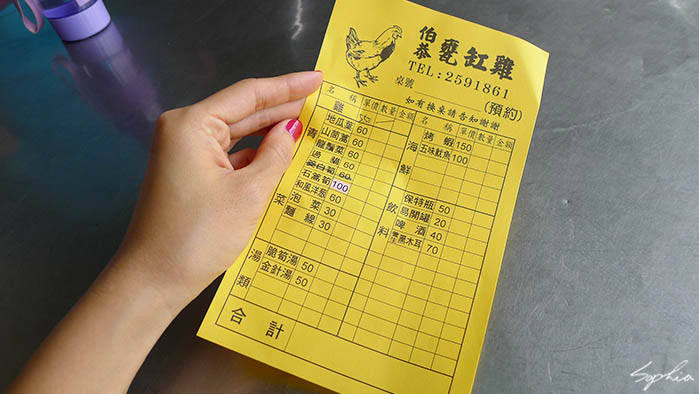 伯恭甕缸雞
TEL:2591861
桌號
(預約)
如有換桌請告知謝謝
名稱 單價 數量 金額
雞
青菜
地瓜葉 60
山茼蒿 60
龍鬚菜 60
過貓 60
蛋白筍 60
石蓮筍 100
和風洋葱 60
泡菜 30
麵線 30
湯類
脆筍湯 50
金針湯 50
合計
名稱 單價 數量 金額
海鮮
烤蝦 150
五味魷魚 100
飲料
保特瓶 50
易開罐 20
啤酒 40
黑木耳 70
Sophia